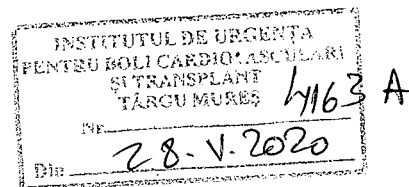 INSTITUTUL DE URGENȚA
PENTRU BOLI CARDIOVASCULARI
ȘI TRANSPLANT
TÂRGU MUREȘ
Nr. 4163 A
Din 28.V.2020